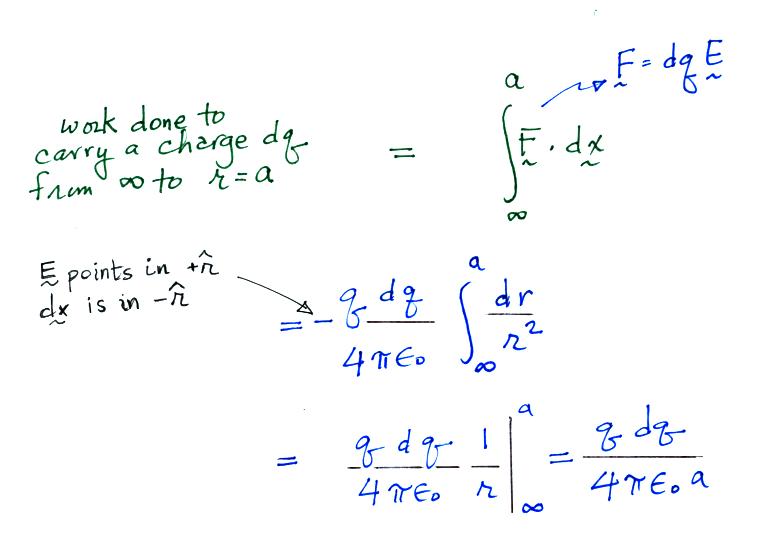 F = dq E
work done to
carry a charge dq
from ∞ to r = a
= ∫_∞^a F · dx
E points in +r̂
dx is in −r̂
= − q dq / 4πε₀ ∫_∞^a dr / r²
= q dq / 4πε₀ 1/r |_∞^a = q dq / 4πε₀ a